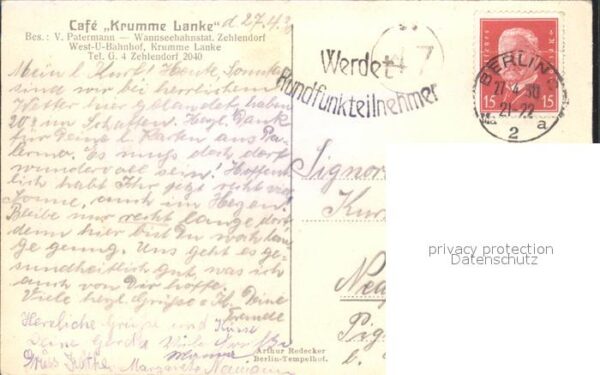 Café „Krumme Lanke"
Bes.: V. Patermann — Wannseebahnstat. Zehlendorf
West-U-Bahnhof, Krumme Lanke
Tel. G. 4 Zehlendorf 2040
d. 27.4.
Mein l. Kurt! Heute, Sonntag
sind wir bei herrlichem
Wetter hier gelandet, haben
20° im Schatten. Herzl. Dank
für Deine l. Karten aus Pa-
lermo. Es muß doch dort
wundervoll sein! Hoffent-
lich habt Ihr jetzt recht viel
Sonne, auch im Herzen.
Bleibe nur recht lange dort
denn hier bist Du noch lan-
ge genug. Uns geht es ge-
sundheitlich gut, was ich
auch von Dir hoffe.
Viele herzl. Grüße Deine
Herzliche Grüße und Küsse
Deine Gerda Viele
Margarete Naumann
Werdet
Rundfunkteilnehmer
BERLIN
27.4.30
21-22
2 a
15 15
Signor
Kur
Nea
Pi
Arthur Redecker
Berlin-Tempelhof.
privacy protection
Datenschutz